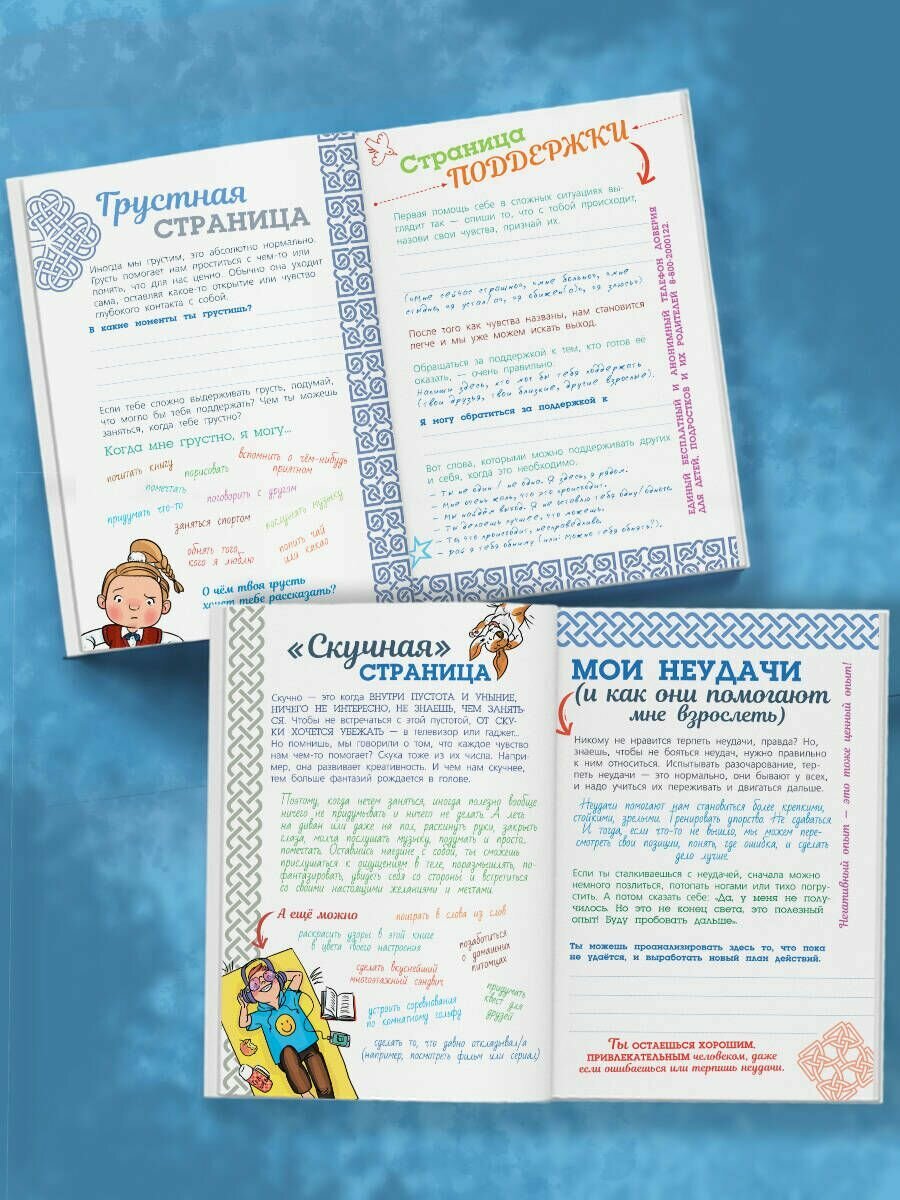 Грустная
СТРАНИЦА
Иногда мы грустим, это абсолютно нормально.
Грусть помогает нам проститься с чем-то или
понять, что для нас ценно. Обычно она уходит
сама, оставляя какое-то открытие или чувство
глубокого контакта с собой.
В какие моменты ты грустишь?
Если тебе сложно выдерживать грусть, подумай,
что могло бы тебя поддержать? Чем ты можешь
заняться, когда тебе грустно?
Когда мне грустно, я могу...
почитать книгу
порисовать
вспомнить о чём-нибудь
приятном
помечтать
поговорить с другом
придумать что-то
заняться спортом
послушать музыку
обнять того,
кого я люблю
попить чай
или какао
О чём твоя грусть
хочет тебе рассказать?
Страница
ПОДДЕРЖКИ
Первая помощь себе в сложных ситуациях вы-
глядит так — опиши то, что с тобой происходит,
назови свои чувства, признай их.
(«мне сейчас страшно», «мне больно», «мне
стыдно», «я устал(а)», «я обижен(а)», «я злюсь»).
После того как чувства названы, нам становится
легче и мы уже можем искать выход.
Обращаться за поддержкой к тем, кто готов её
оказать, — очень правильно.
Напиши здесь, кто мог бы тебя поддержать
(твои друзья, твои близкие, другие взрослые).
Я могу обратиться за поддержкой к
Вот слова, которыми можно поддерживать других
и себя, когда это необходимо.
– Ты не один / не одна. Я здесь, я рядом.
– Мне очень жаль, что это происходит.
– Мы найдём выход. Я не оставлю тебя одну/одного.
– Ты делаешь лучшее, что можешь.
– То, что происходит, несправедливо.
– Дай я тебя обниму (или: можно тебя обнять?).
ЕДИНЫЙ БЕСПЛАТНЫЙ И АНОНИМНЫЙ ТЕЛЕФОН ДОВЕРИЯ
ДЛЯ ДЕТЕЙ, ПОДРОСТКОВ И ИХ РОДИТЕЛЕЙ 8-800-2000122.
«Скучная»
СТРАНИЦА
Скучно — это когда ВНУТРИ ПУСТОТА И УНЫНИЕ,
НИЧЕГО НЕ ИНТЕРЕСНО, НЕ ЗНАЕШЬ, ЧЕМ ЗАНЯТЬ-
СЯ. Чтобы не встречаться с этой пустотой, ОТ СКУ-
КИ ХОЧЕТСЯ УБЕЖАТЬ — в телевизор или гаджет...
Но помнишь, мы говорили о том, что каждое чувство
нам чем-то помогает? Скука тоже из их числа. Напри-
мер, она развивает креативность. И чем нам скучнее,
тем больше фантазий рождается в голове.
Поэтому, когда нечем заняться, иногда полезно вообще
ничего не придумывать и ничего не делать. А лечь
на диван или даже на пол, раскинуть руки, закрыть
глаза, молча послушать музыку, подумать и просто...
помечтать. Оставшись наедине с собой, ты сможешь
прислушаться к ощущениям в теле, поразмышлять, по-
фантазировать, увидеть себя со стороны и встретиться
со своими настоящими желаниями и мечтами.
А ещё можно
поиграть в слова из слов
раскрасить узоры в этой книге
в цвета твоего настроения
позаботиться
о домашних
питомцах
сделать вкуснейший
многоэтажный сэндвич
придумать
квест для
друзей
устроить соревнования
по комнатному гольфу
сделать то, что давно откладывал/а
(например, посмотреть фильм или сериал)
МОИ НЕУДАЧИ
(и как они помогают
мне взрослеть)
Никому не нравится терпеть неудачи, правда? Но,
знаешь, чтобы не бояться неудач, нужно правильно
к ним относиться. Испытывать разочарование, тер-
петь неудачи — это нормально, они бывают у всех,
и надо учиться их переживать и двигаться дальше.
Неудачи помогают нам становиться более крепкими,
стойкими, зрелыми. Тренировать упорство. Не сдаваться.
И тогда, если что-то не вышло, мы можем пере-
смотреть свои позиции, понять, где ошибка, и сделать
дело лучше.
Если ты сталкиваешься с неудачей, сначала можно
немного позлиться, потопать ногами или тихо погрус-
тить. А потом сказать себе: «Да, у меня не полу-
чилось. Но это не конец света, это полезный
опыт! Буду пробовать дальше».
Ты можешь проанализировать здесь то, что пока
не удаётся, и выработать новый план действий.
Ты ОСТАЕШЬСЯ ХОРОШИМ,
ПРИВЛЕКАТЕЛЬНЫМ человеком, даже
если ошибаешься или терпишь неудачи.
Негативный опыт — это тоже ценный опыт!